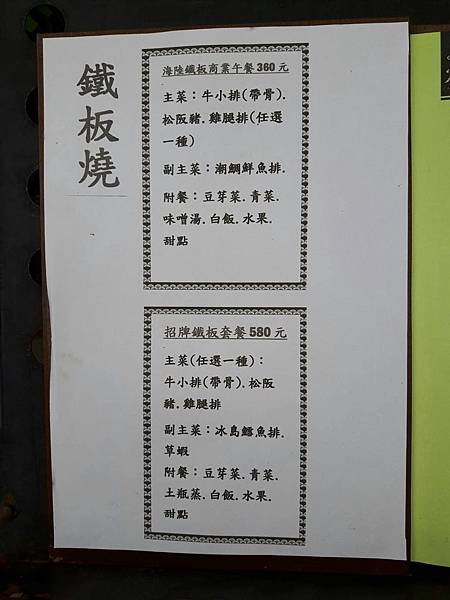 鐵板燒
海陸鐵板商業午餐360元
主菜：牛小排(帶骨).
松阪豬.雞腿排(任選
一種)
副主菜：潮鯛鮮魚排.
附餐：豆芽菜.青菜.
味噌湯.白飯.水果.
甜點
招牌鐵板套餐580元
主菜(任選一種)：
牛小排(帶骨).松阪
豬.雞腿排
副主菜：冰島鱈魚排.
草蝦
附餐：豆芽菜.青菜.
土瓶蒸.白飯.水果.
甜點